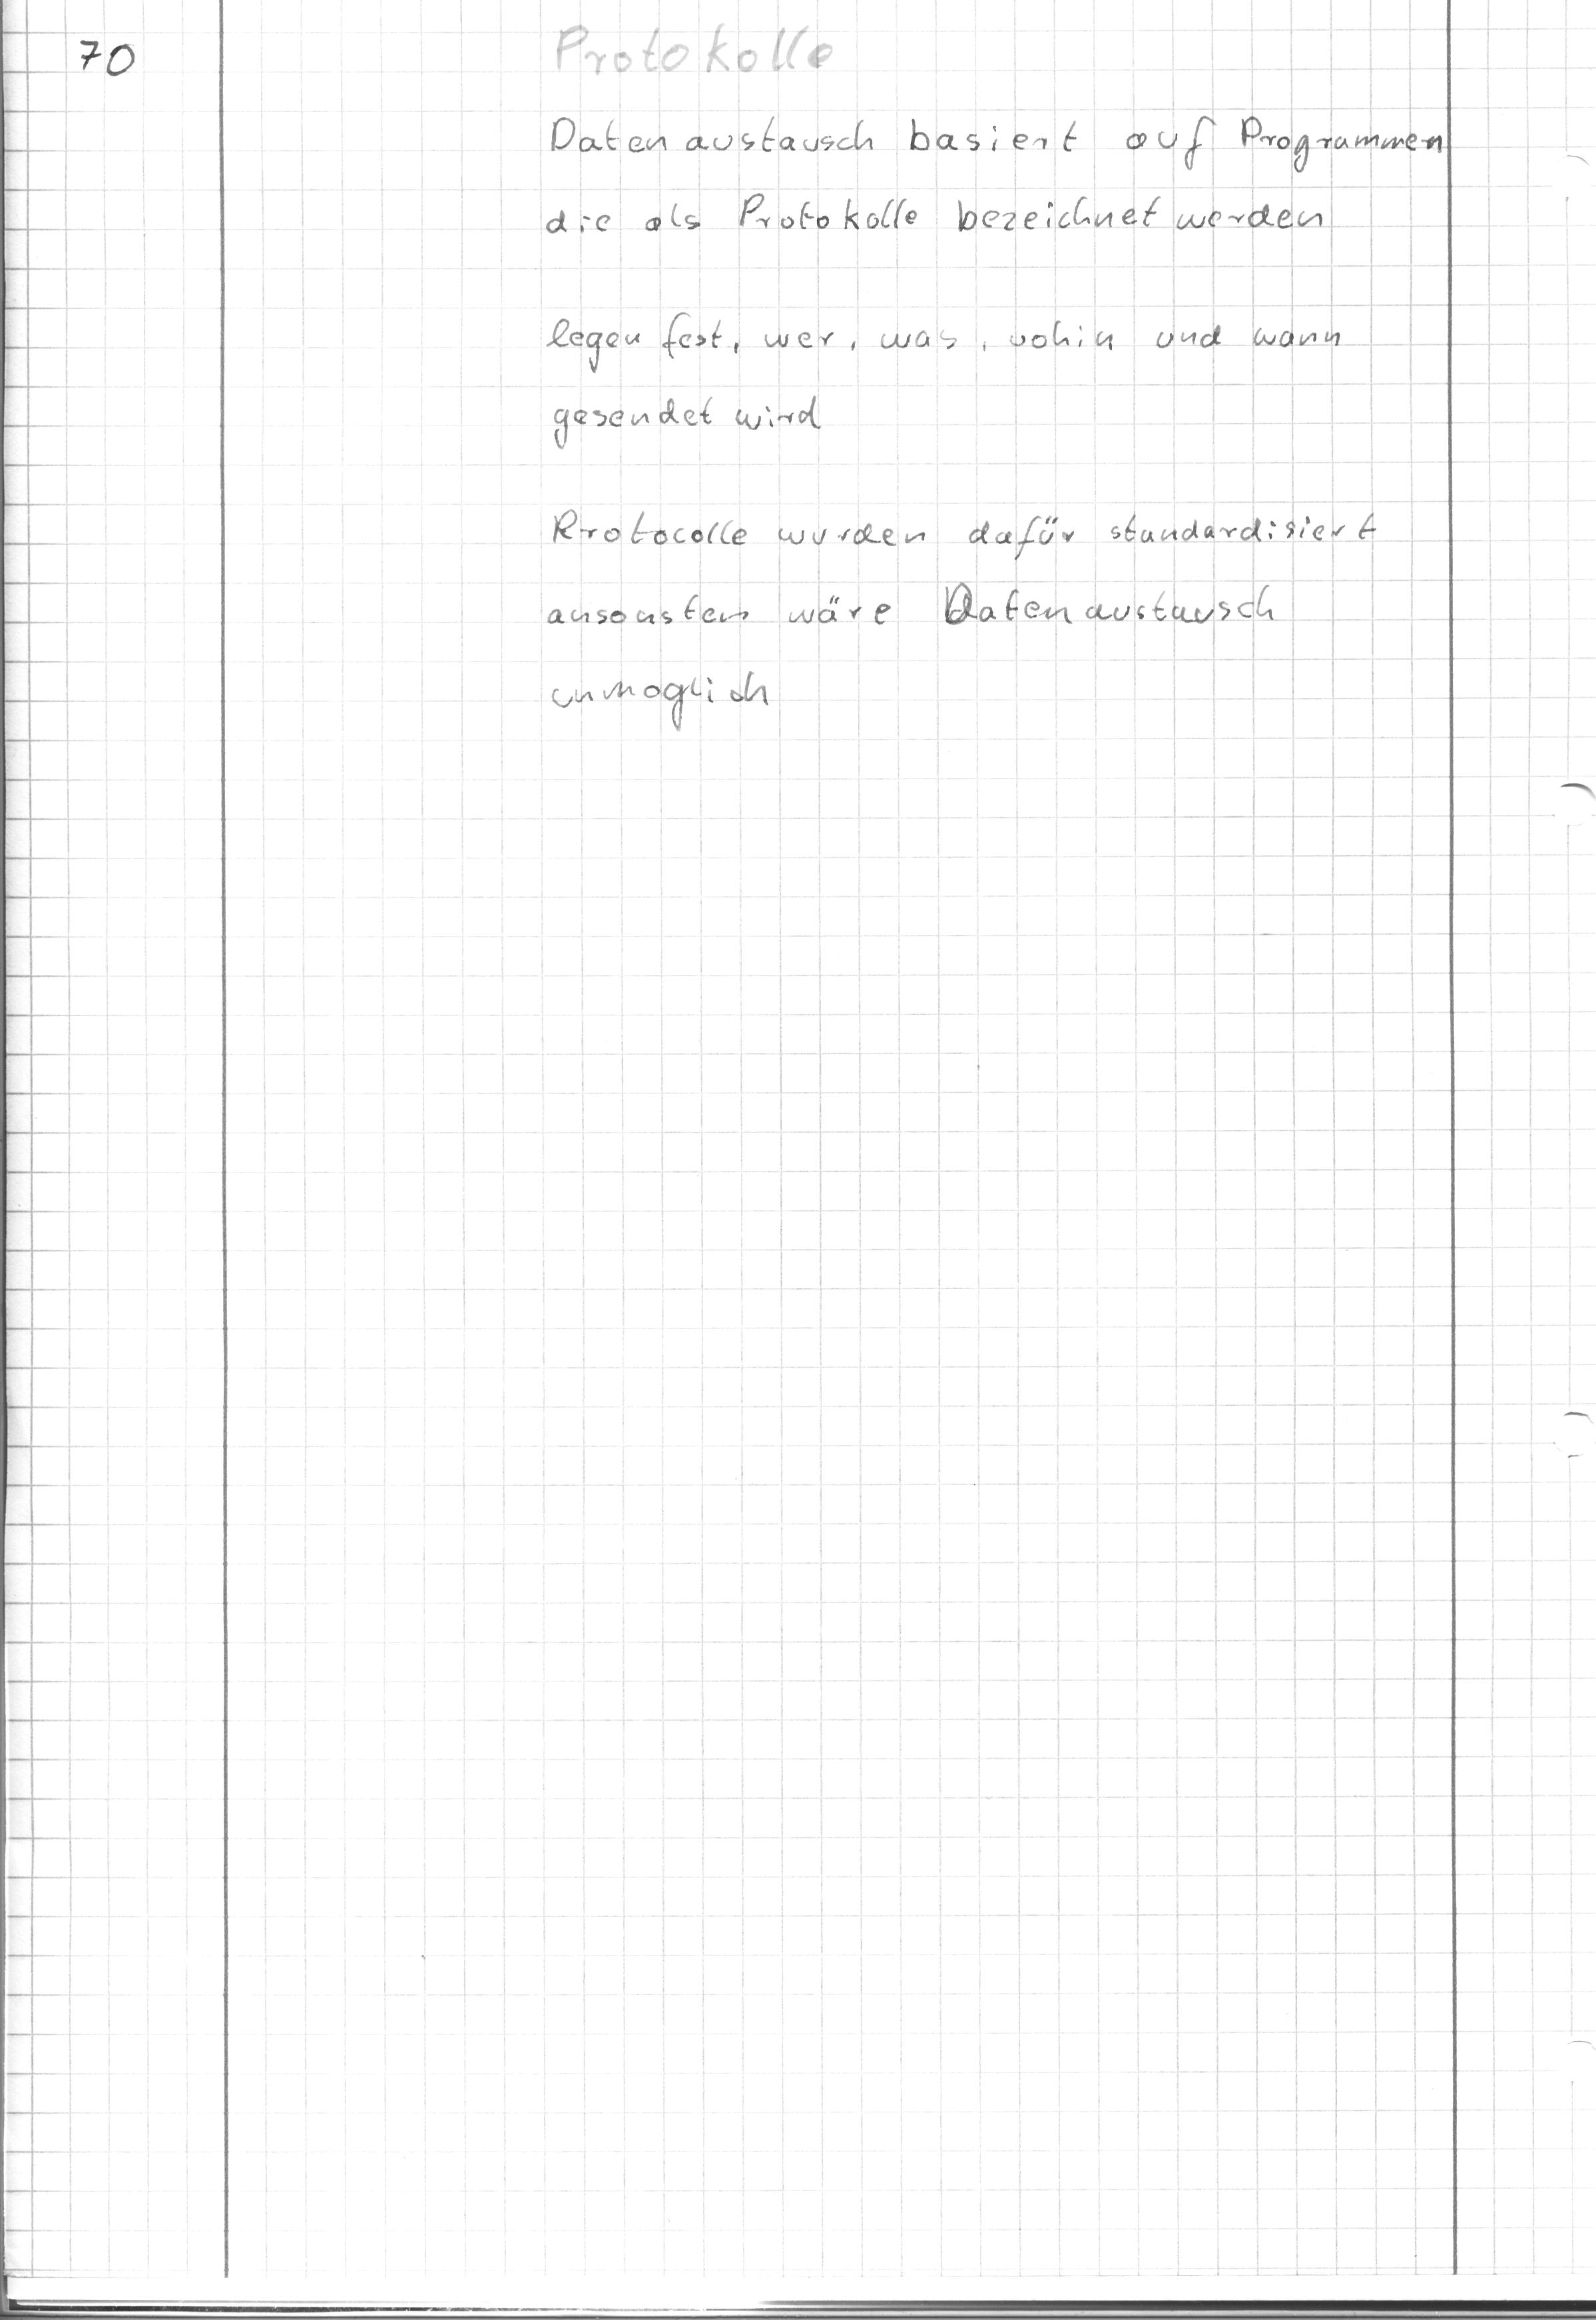 70
Protokolle
Datenaustausch basiert auf Programmen
die als Protokolle bezeichnet werden
legen fest, wer, was, wohin und wann
gesendet wird
Protocolle wurden dafür standardisiert
ansonsten wäre Datenaustausch
unmoglich